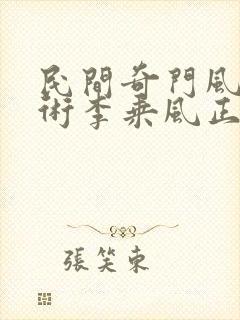 民間奇門風
術李乘風正
張笑東